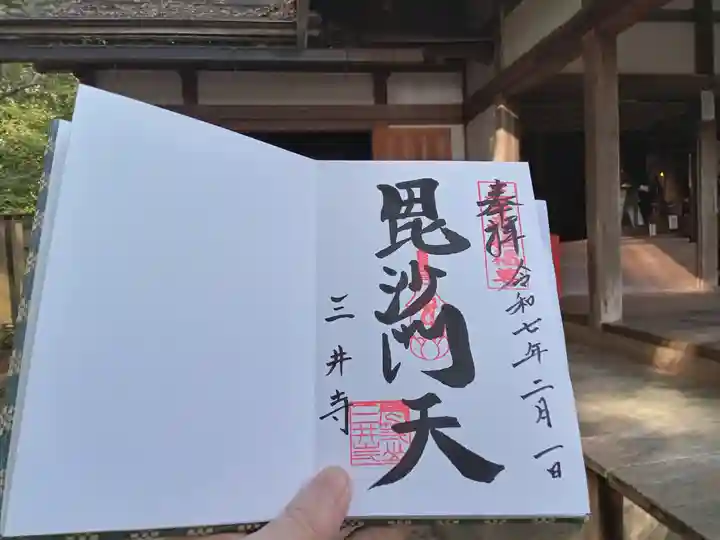 奉拝
令和七年二月一日
毘沙門天
三井寺